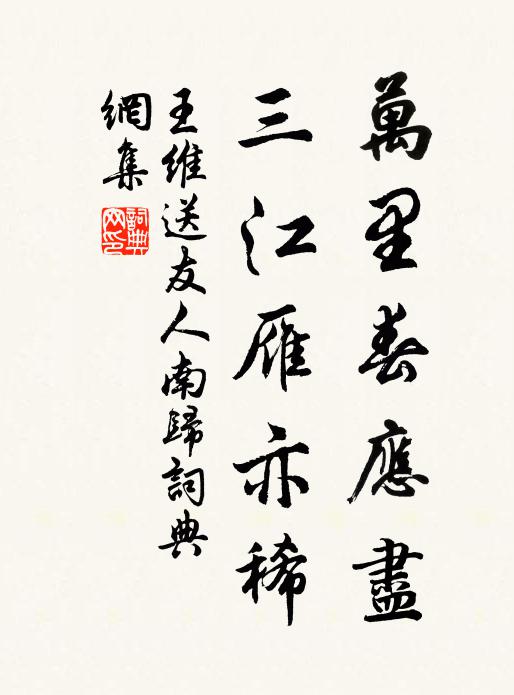 萬里春應盡
三江雁亦稀
王維送友人南歸詞典
網集
詞典
网印